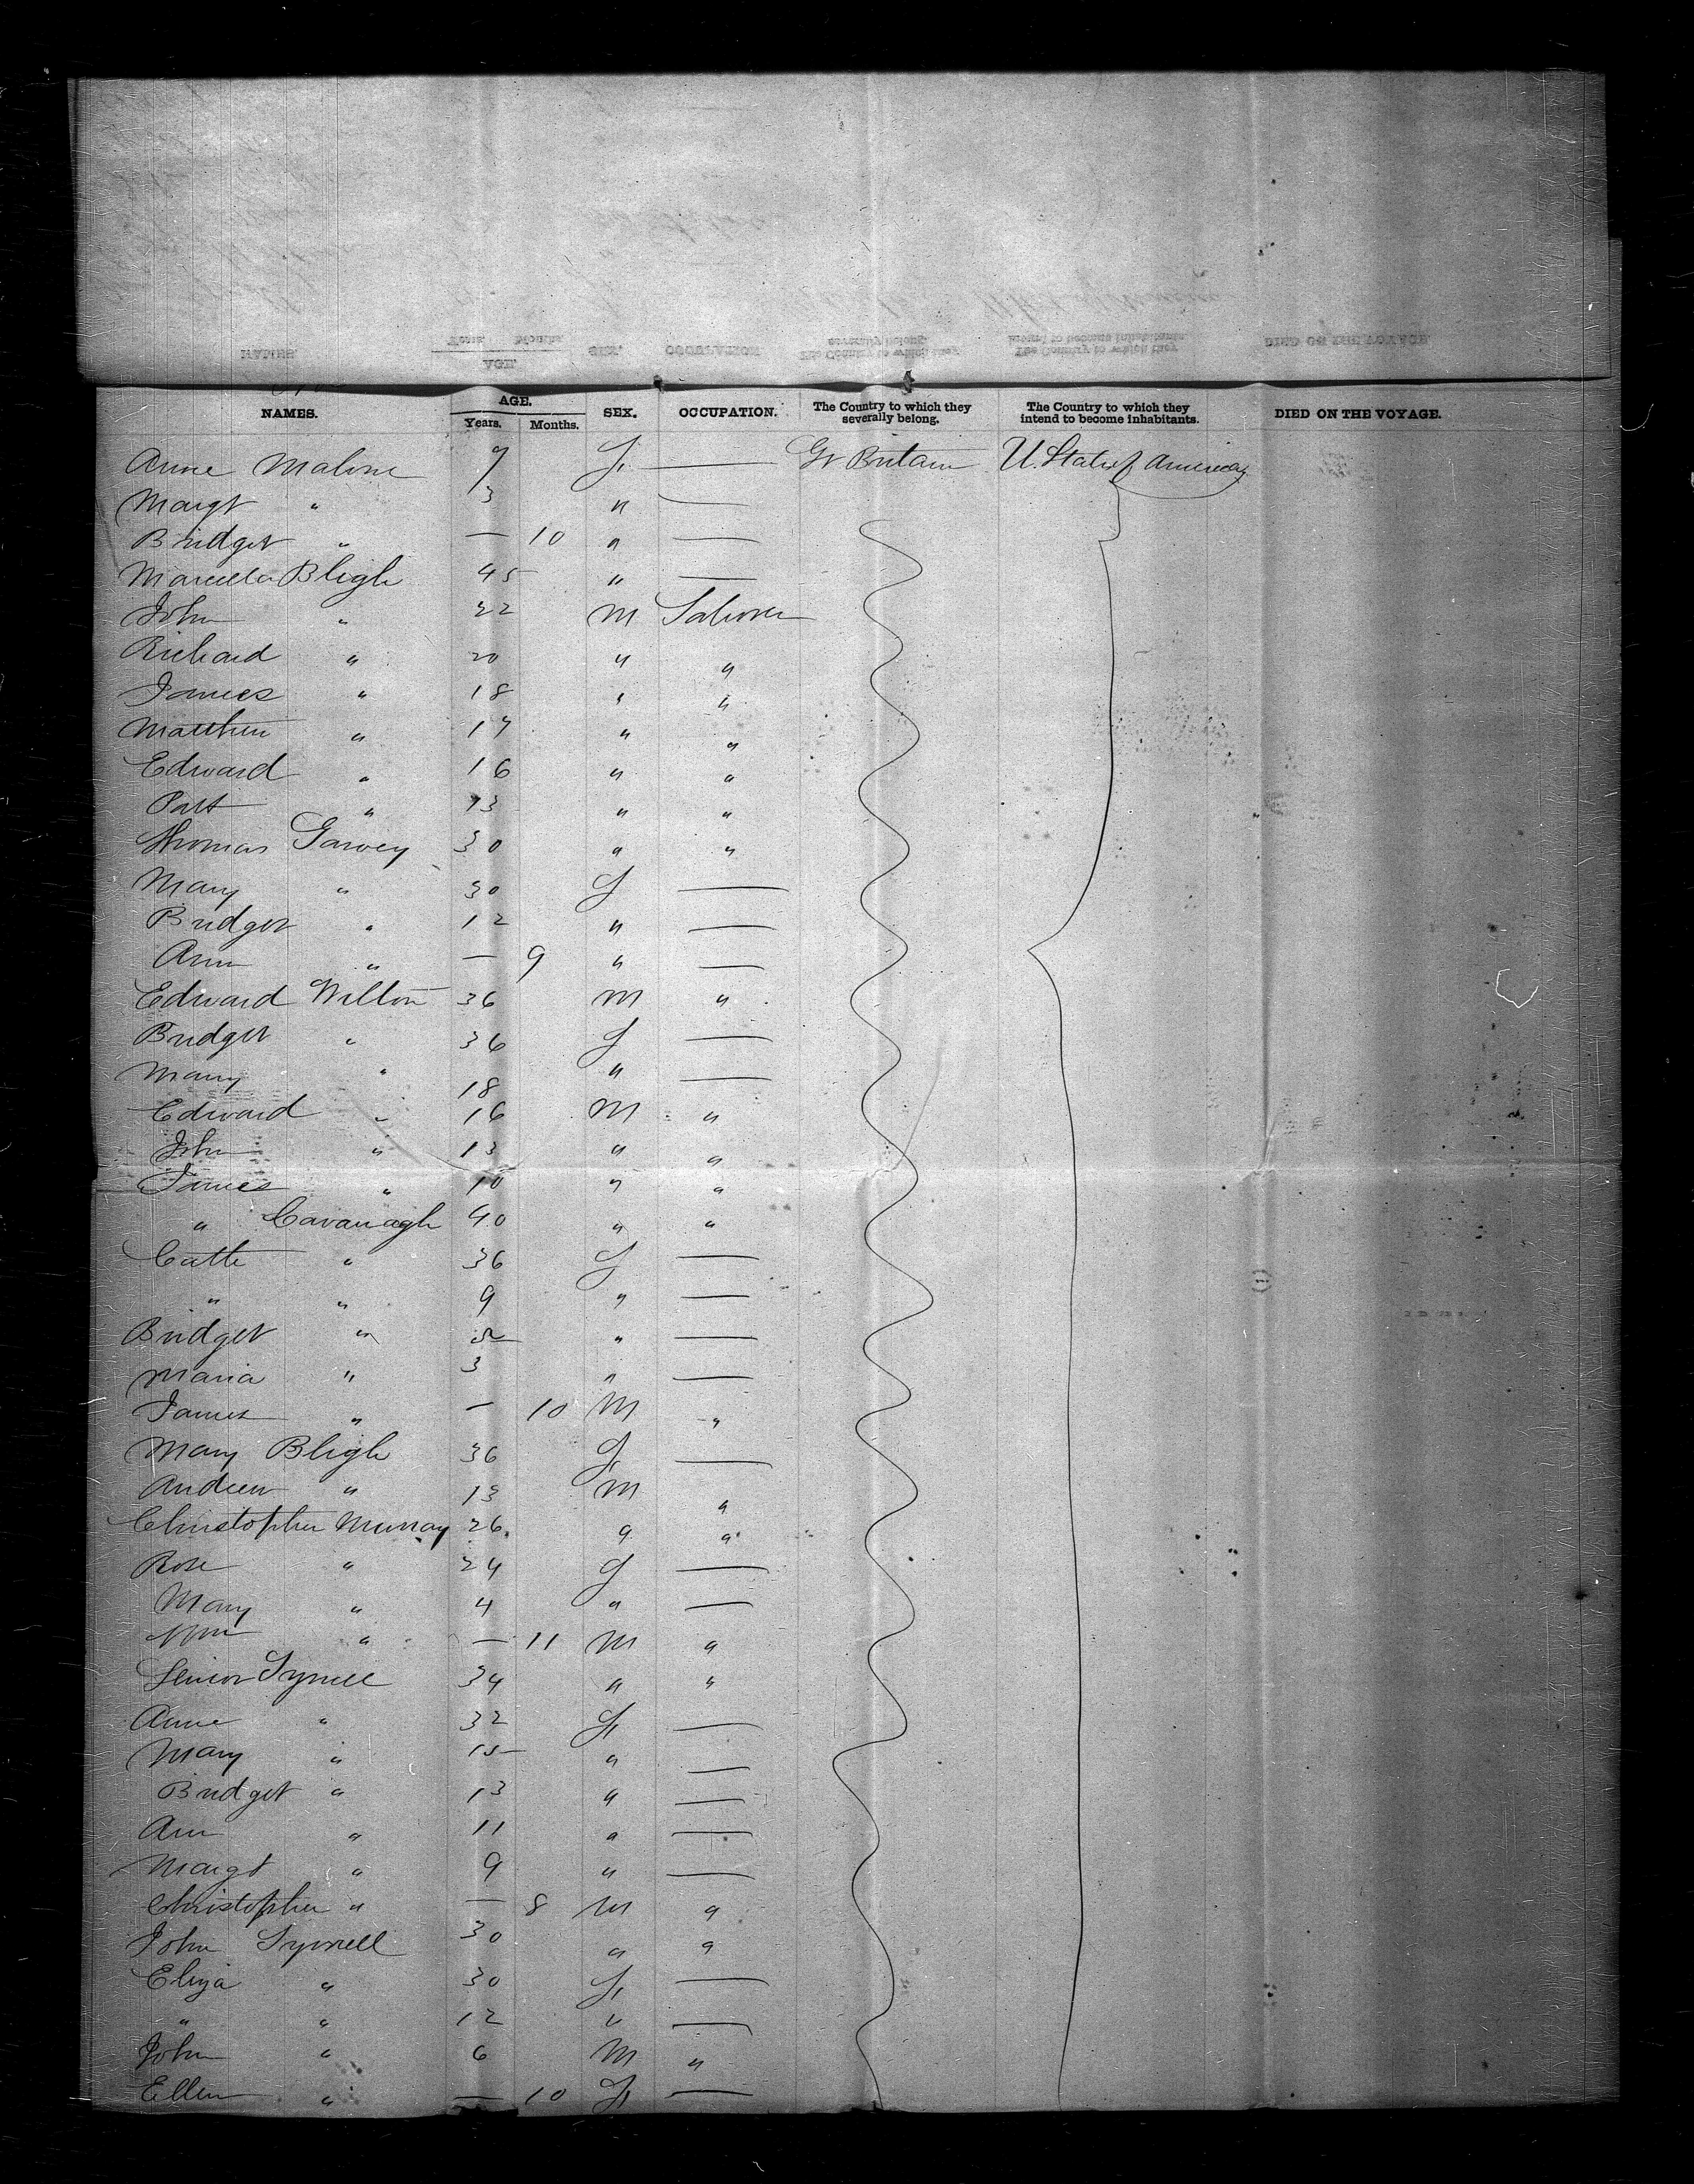 NAMES. AGE. Years. Months. SEX. OCCUPATION. The Country to which they severally belong. The Country to which they intend to become inhabitants. DIED ON THE VOYAGE.
Anne Malone 7 F. — Gt Britain U. States of America
Margt " 3 " —
Bridget " — 10 " —
Marcella Bligh 45 " —
John " 22 M Laborer
Richard " 20 " "
James " 18 " "
Matthew " 17 " "
Edward " 16 " "
Patt " 13 " "
Thomas Garvey 30 " "
Mary " 30 F —
Bridget " 12 " —
Ann " — 9 " —
Edward Wilton 36 M "
Bridget " 36 F —
Mary " 18 " —
Edward " 16 M "
John " 13 " "
James " 10 " "
" Cavanagh 40 " "
Cath " 36 F —
" " 9 " —
Bridget " 5 " —
Maria " 3 " —
James " — 10 M "
Mary Bligh 36 F. —
Andrew " 13 M "
Christopher Murray 26. " "
Rose " 24 F —
Mary " 4 " —
Wm " — 11 M "
Tyrrell 34 " "
Anne " 32 F. —
Mary " 15 " —
Bridget " 13 " —
Ann " 11 " —
Margt " 9 " —
Christopher " — 8 M "
John Tyrrell 30 " "
Eliza " 30 F. —
" " 12 " —
John " 6 M "
Ellen " — 10 F. —